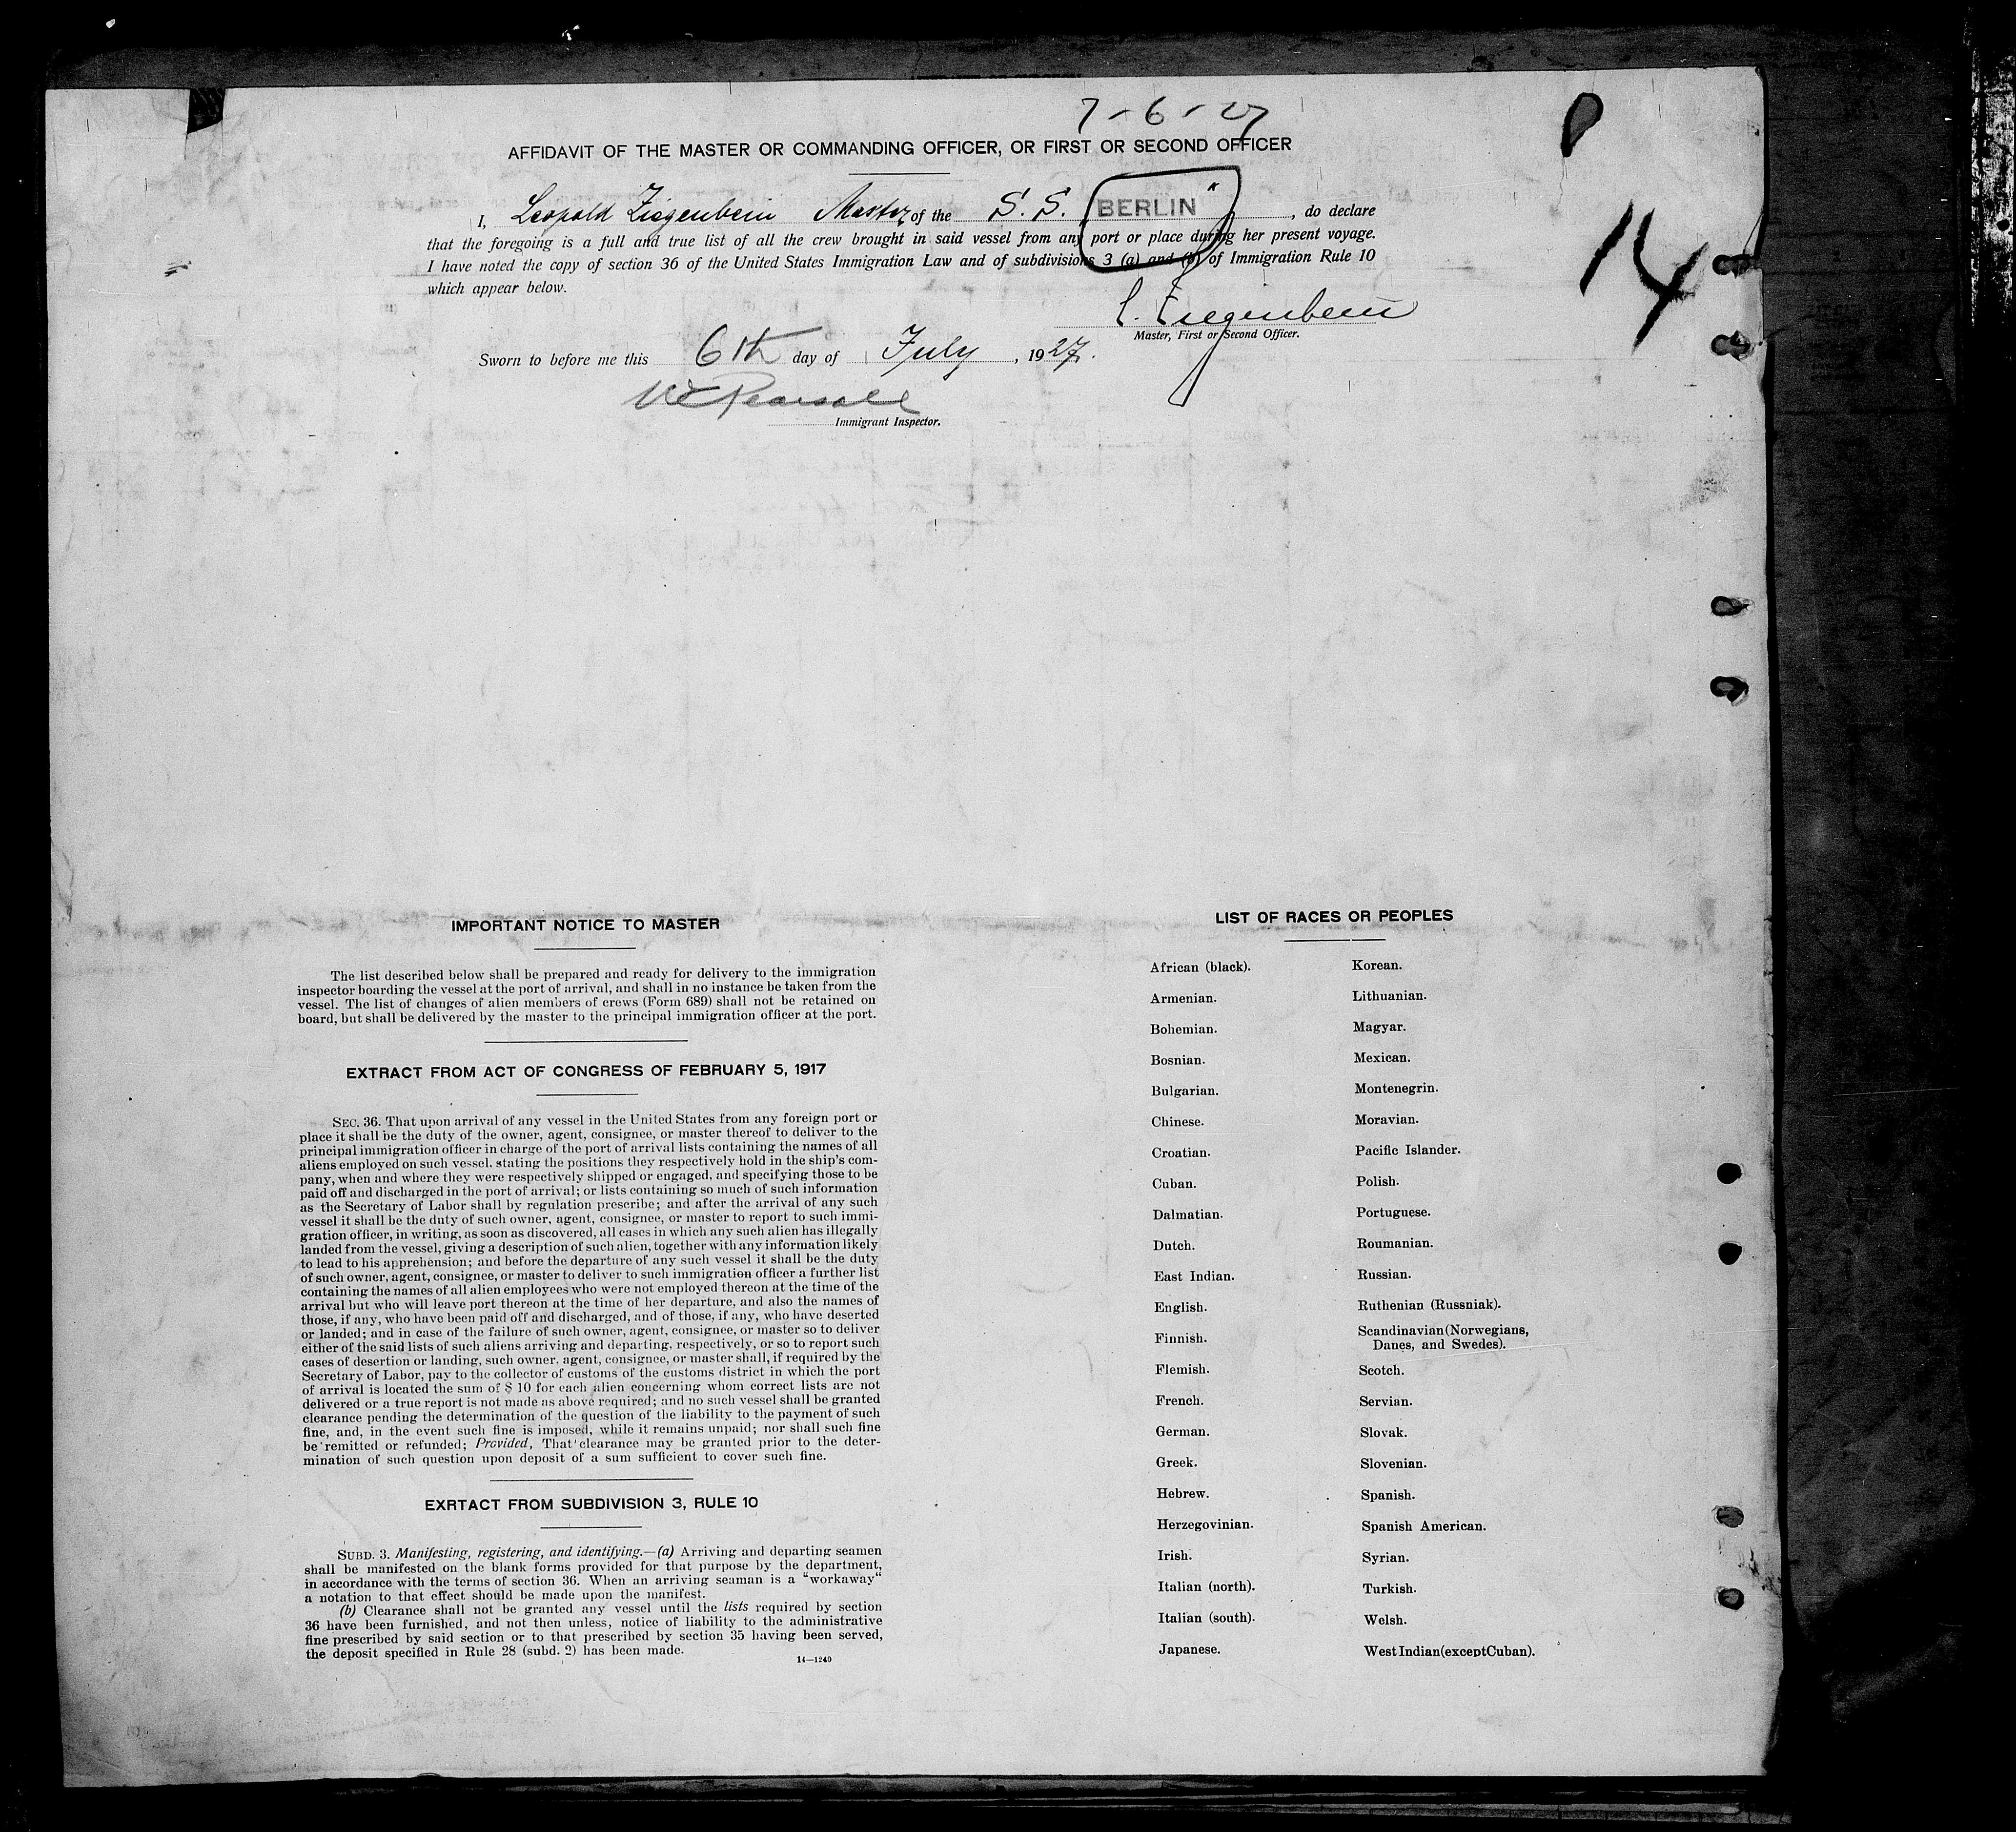 7-6-27
AFFIDAVIT OF THE MASTER OR COMMANDING OFFICER, OR FIRST OR SECOND OFFICER
I, Leopold Ziegenbein Master of the S. S. BERLIN", do declare
that the foregoing is a full and true list of all the crew brought in said vessel from any port or place during her present voyage.
I have noted the copy of section 36 of the United States Immigration Law and of subdivisions 3 (a) and (b) of Immigration Rule 10
which appear below.
14
L. Ziegenbein
Master, First or Second Officer.
Sworn to before me this 6th day of July, 1927.
Pearsall
Immigrant Inspector.
IMPORTANT NOTICE TO MASTER
The list described below shall be prepared and ready for delivery to the immigration
inspector boarding the vessel at the port of arrival, and shall in no instance be taken from the
vessel. The list of changes of alien members of crews (Form 689) shall not be retained on
board, but shall be delivered by the master to the principal immigration officer at the port.
EXTRACT FROM ACT OF CONGRESS OF FEBRUARY 5, 1917
SEC. 36. That upon arrival of any vessel in the United States from any foreign port or
place it shall be the duty of the owner, agent, consignee, or master thereof to deliver to the
principal immigration officer in charge of the port of arrival lists containing the names of all
aliens employed on such vessel, stating the positions they respectively hold in the ship's com-
pany, when and where they were respectively shipped or engaged, and specifying those to be
paid off and discharged in the port of arrival; or lists containing so much of such information
as the Secretary of Labor shall by regulation prescribe; and after the arrival of any such
vessel it shall be the duty of such owner, agent, consignee, or master to report to such immi-
gration officer, in writing, as soon as discovered, all cases in which any such alien has illegally
landed from the vessel, giving a description of such alien, together with any information likely
to lead to his apprehension; and before the departure of any such vessel it shall be the duty
of such owner, agent, consignee, or master to deliver to such immigration officer a further list
containing the names of all alien employees who were not employed thereon at the time of the
arrival but who will leave port thereon at the time of her departure, and also the names of
those, if any, who have been paid off and discharged, and of those, if any, who have deserted
or landed; and in case of the failure of such owner, agent, consignee, or master so to deliver
either of the said lists of such aliens arriving and departing, respectively, or so to report such
cases of desertion or landing, such owner, agent, consignee, or master shall, if required by the
Secretary of Labor, pay to the collector of customs of the customs district in which the port
of arrival is located the sum of $ 10 for each alien concerning whom correct lists are not
delivered or a true report is not made as above required; and no such vessel shall be granted
clearance pending the determination of the question of the liability to the payment of such
fine, and, in the event such fine is imposed, while it remains unpaid; nor shall such fine
be remitted or refunded; Provided, That clearance may be granted prior to the deter-
mination of such question upon deposit of a sum sufficient to cover such fine.
EXRTACT FROM SUBDIVISION 3, RULE 10
SUBD. 3. Manifesting, registering, and identifying.—(a) Arriving and departing seamen
shall be manifested on the blank forms provided for that purpose by the department,
in accordance with the terms of section 36. When an arriving seaman is a "workaway"
a notation to that effect should be made upon the manifest.
(b) Clearance shall not be granted any vessel until the lists required by section
36 have been furnished, and not then unless, notice of liability to the administrative
fine prescribed by said section or to that prescribed by section 35 having been served,
the deposit specified in Rule 28 (subd. 2) has been made.
14—1240
LIST OF RACES OR PEOPLES
African (black).
Armenian.
Bohemian.
Bosnian.
Bulgarian.
Chinese.
Croatian.
Cuban.
Dalmatian.
Dutch.
East Indian.
English.
Finnish.
Flemish.
French.
German.
Greek.
Hebrew.
Herzegovinian.
Irish.
Italian (north).
Italian (south).
Japanese.
Korean.
Lithuanian.
Magyar.
Mexican.
Montenegrin.
Moravian.
Pacific Islander.
Polish.
Portuguese.
Roumanian.
Russian.
Ruthenian (Russniak).
Scandinavian (Norwegians,
Danes, and Swedes).
Scotch.
Servian.
Slovak.
Slovenian.
Spanish.
Spanish American.
Syrian.
Turkish.
Welsh.
West Indian (except Cuban).